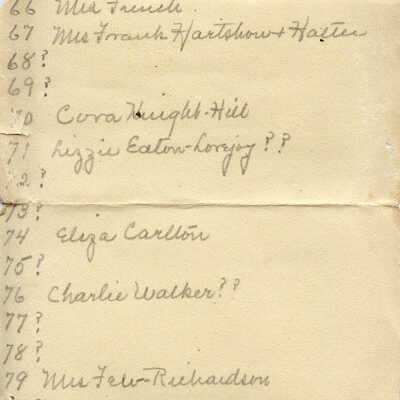 66 Mrs French.
67 Mrs Frank Hartshow + Hattie
68?
69?
70 Cora Knight-Hill
71 Lizzie Eaton-Lovejoy??
72?
73?
74 Eliza Carlton
75?
76 Charlie Walker??
77?
78?
79 Mrs Few-Richardson